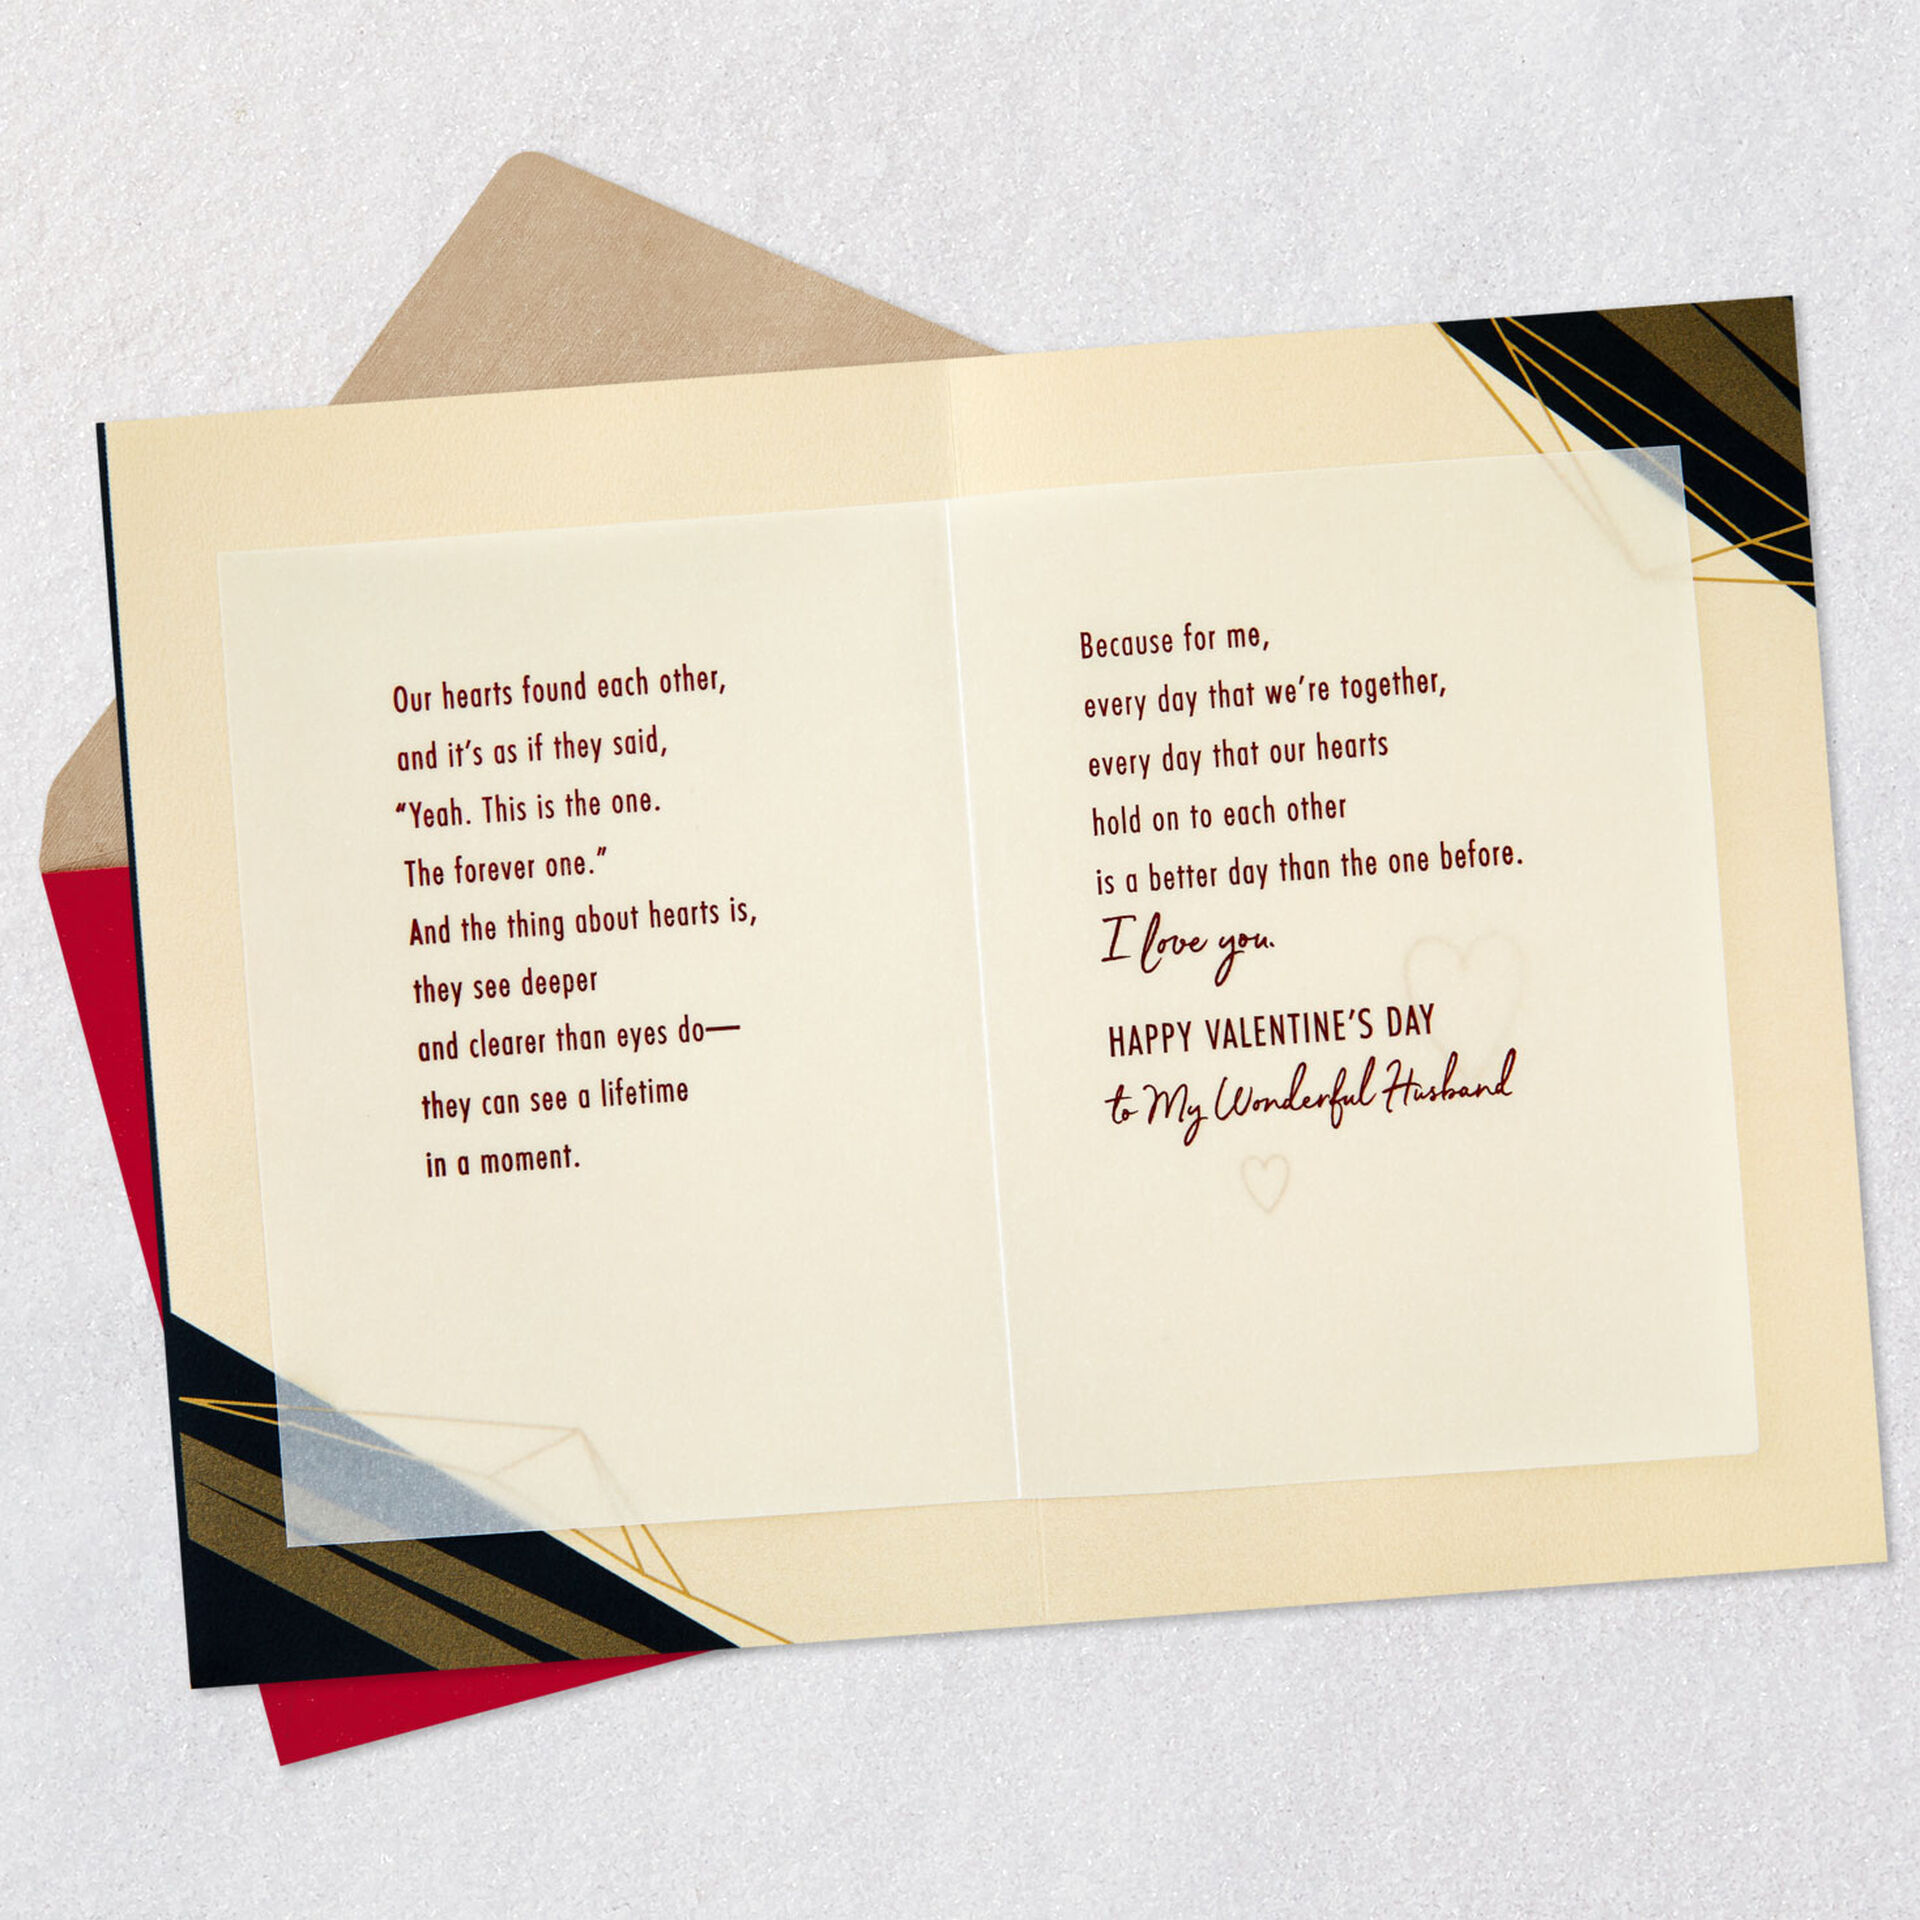 Our hearts found each other,
and it’s as if they said,
“Yeah. This is the one.
The forever one.”
And the thing about hearts is,
they see deeper
and clearer than eyes do—
they can see a lifetime
in a moment.
Because for me,
every day that we’re together,
every day that our hearts
hold on to each other
is a better day than the one before.
I love you.
HAPPY VALENTINE’S DAY
to My Wonderful Husband